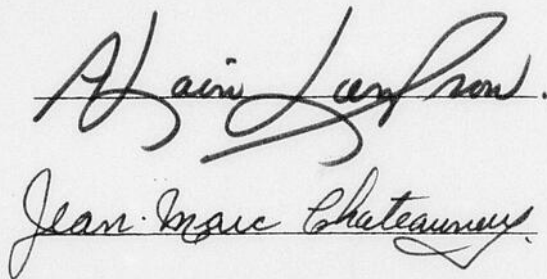 Alain Lampron.
Jean-Marc Chateauneuf.